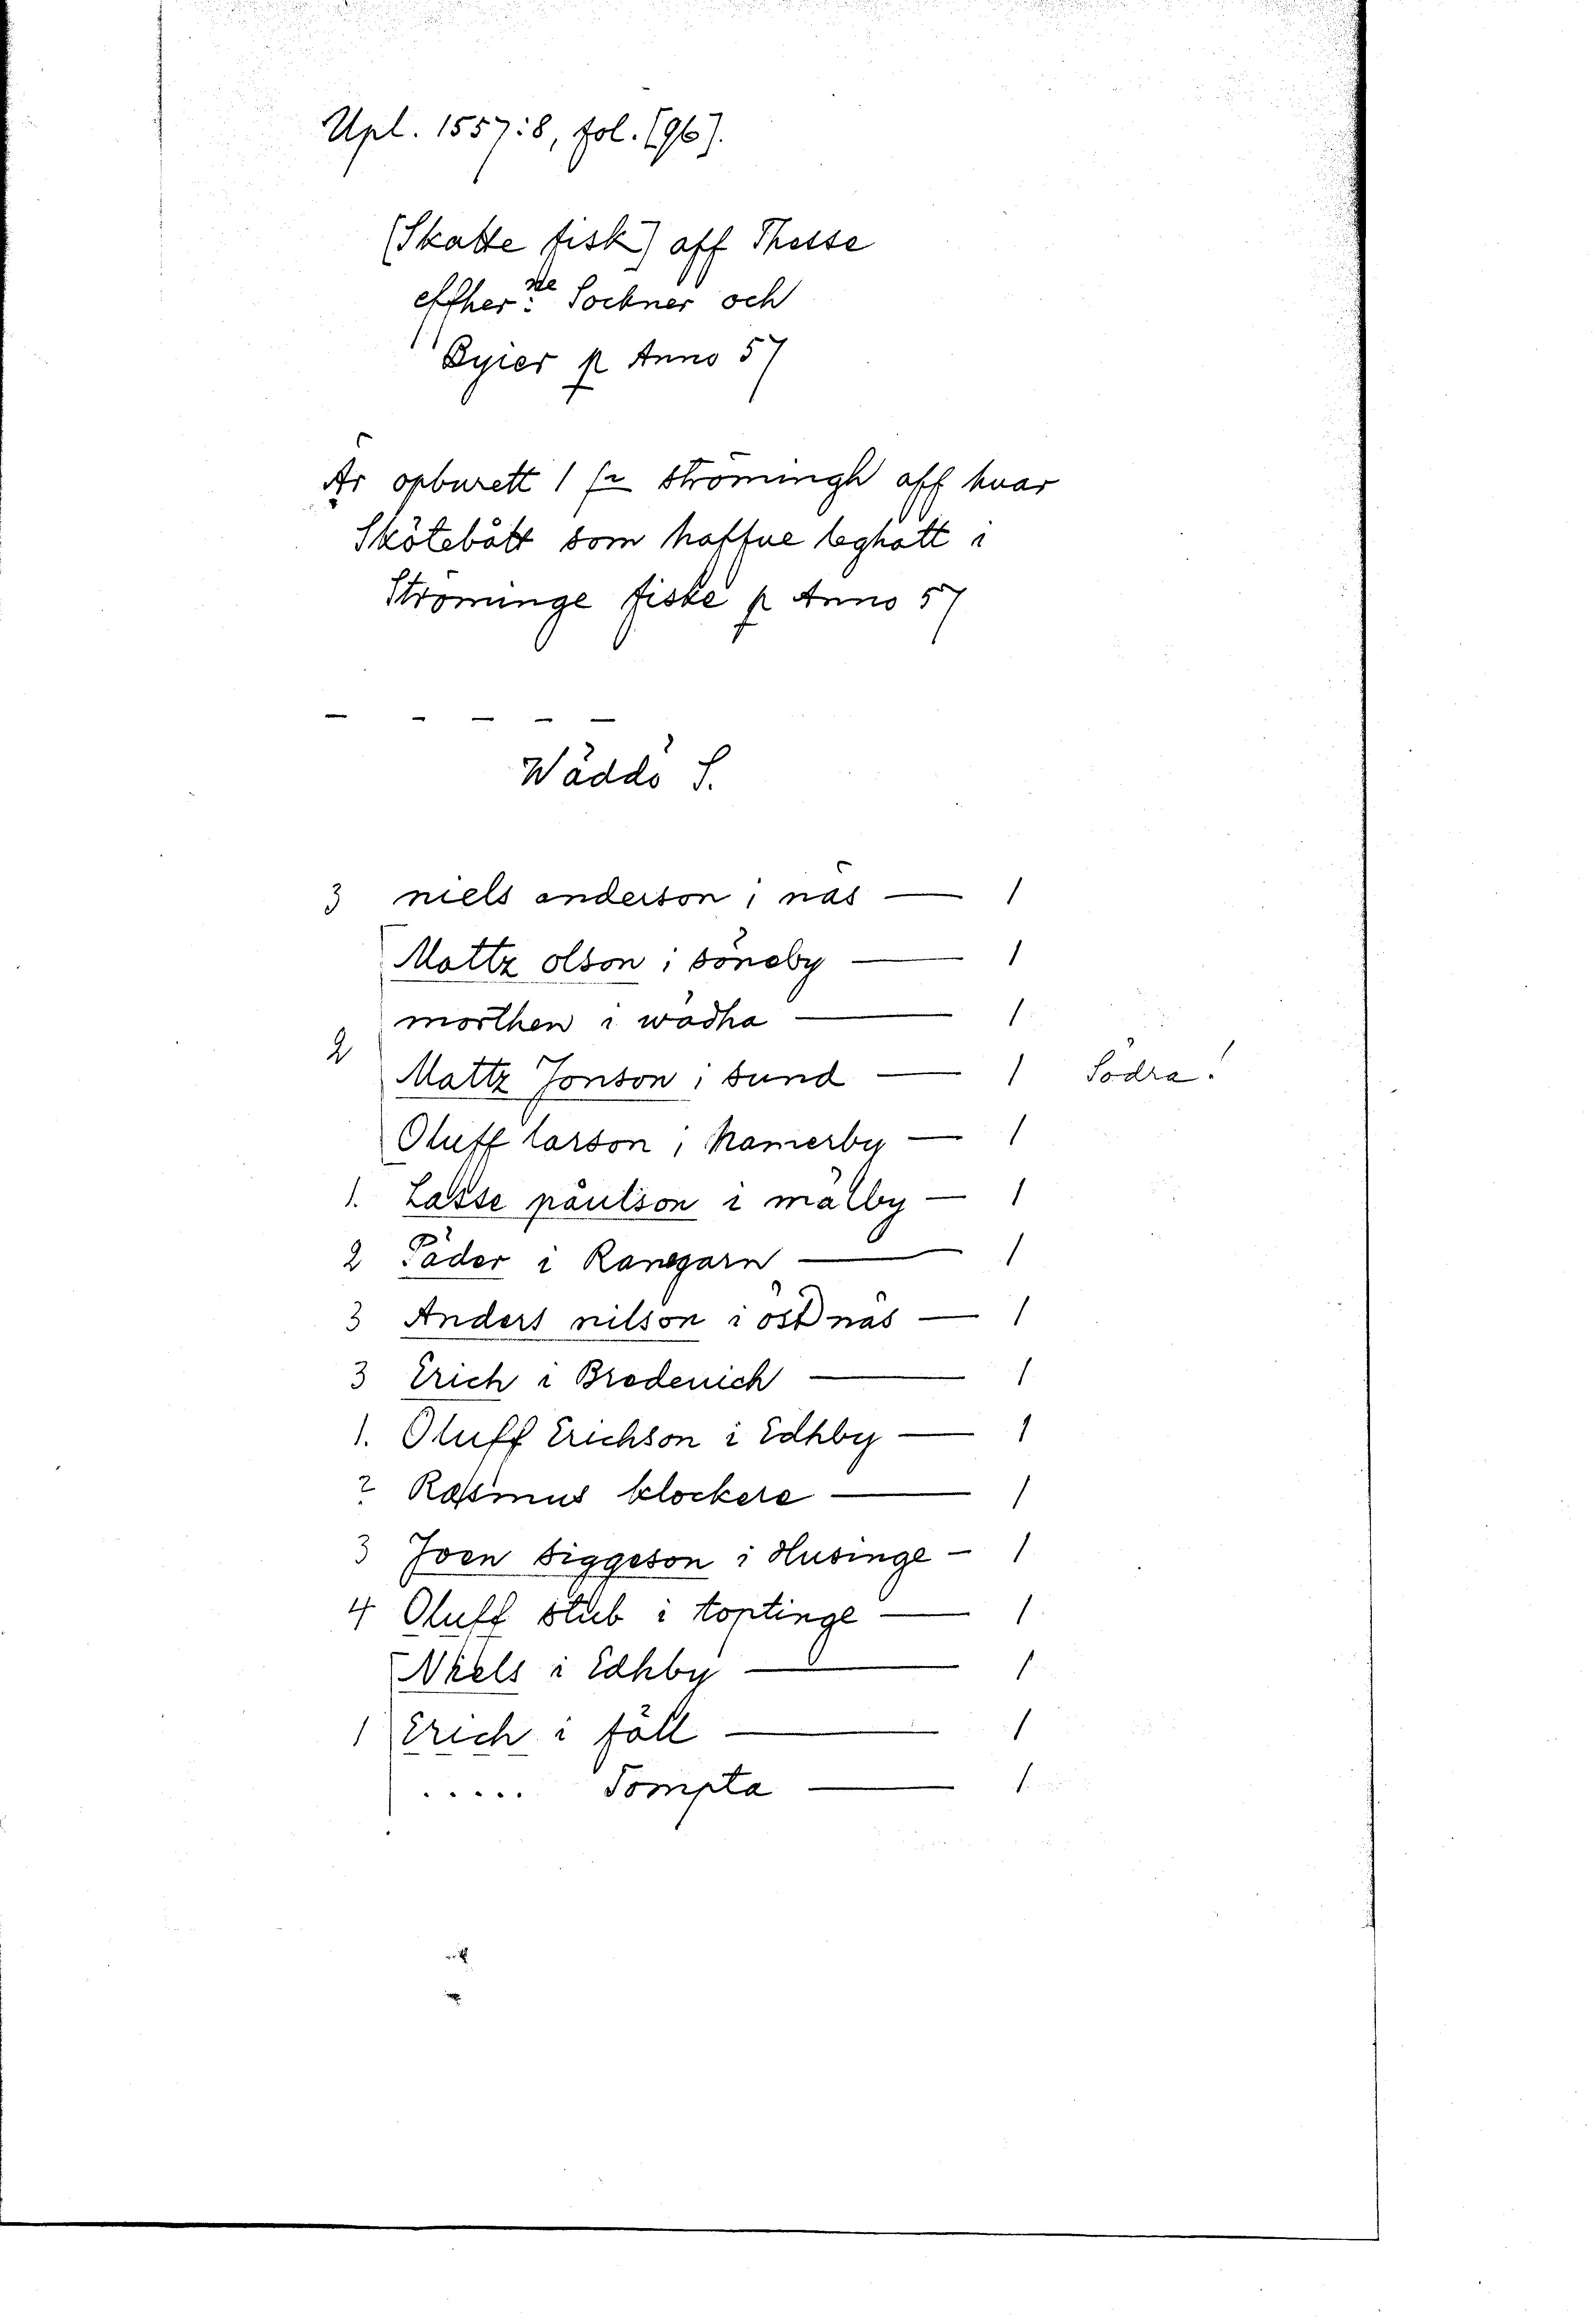 Upl. 1557:8, fol. [96].
[Skatte fisk] aff Thesse
effher:ne Sockner och
Byier p Anno 57
Är opburett 1 strömingh aff huar
Skötebått som haffue leghatt i
Ströminge fiske p Anno 57
- - - - -
Wäddö S.
3 niels anderson i näs — 1
Mattz olson i söneby — 1
morthen i wådha — 1
2 Mattz Jonson i sund — 1 Södra!
Oluff larson i hamerby — 1
1. Lasse påulson i mälby — 1
2 Päder i Rangarn — 1
3 Anders nilson i östnäs — 1
3 Erich i Bredeuich — 1
1. Oluff Erichson i Edhby — 1
? Rasmus klockere — 1
3 Joen siggeson i Husinge — 1
4 Oluff stub i toptinge — 1
Niels i Edhby — 1
1 Erich i fäll — 1
..... Tompta — 1